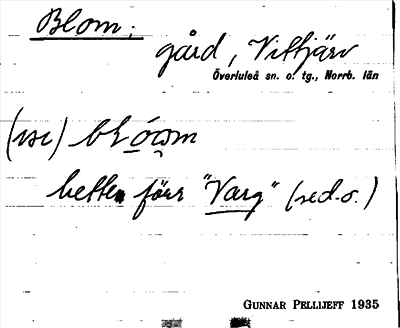 Blom.
gård, Vittjärv
Överluleå sn. o. tg., Norrb. län
hette förr "Varg" (se d.o.)
GUNNAR PELLIJEFF 1935